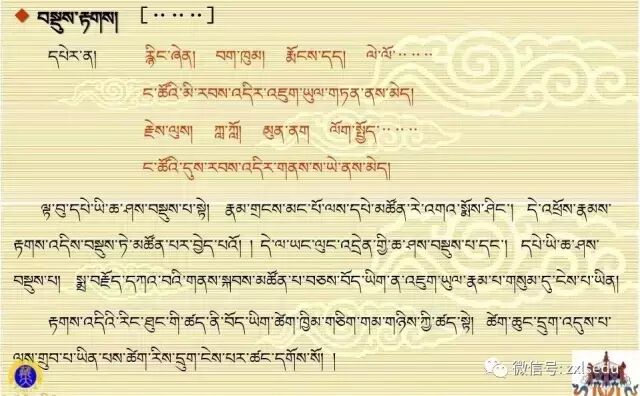 ❖ བསྡུས་རྟགས། [‥‥‥]
དཔེར་ན། རྙིང་ཞེན། བག་ཁུམ། རྨོངས་དད། ལེ་ལོ‥‥‥
ང་ཚོའི་མི་རབས་འདིར་འཇུག་ཡུལ་གཏན་ནས་མེད།
རྗེས་ལུས། ཀླ་ཀློ། མུན་ནག ལོག་སྤྱོད‥‥‥
ང་ཚོའི་དུས་རབས་འདིར་གནས་ས་ཡེ་ནས་མེད།
ལྟ་བུ་དཔེ་ཡི་ཆ་ཤས་བསྡུས་པ་སྟེ། རྣམ་གྲངས་མང་པོ་ལས་དཔེ་མཚོན་རེ་འགའ་སྨོས་ཤིང་། དེ་འཕྲོས་རྣམས་
རྟགས་འདིས་བསྡུས་ཏེ་མཚོན་པར་བྱེད་པའོ། །དེ་ལ་ཡང་ལུང་འདྲེན་གྱི་ཆ་ཤས་བསྡུས་པ་དང་། དཔེ་ཡི་ཆ་ཤས་
བསྡུས་པ། སྨྲ་བརྗོད་དཀའ་བའི་གནས་སྐབས་མཚོན་པ་བཅས་བོད་ཡིག་ན་འཇུག་ཡུལ་རྣམ་པ་གསུམ་དུ་ངེས་པ་ཡིན།
རྟགས་འདིའི་རིང་ཐུང་གི་ཚད་ནི་བོད་ཡིག་ཚེག་ཁྱིམ་གཅིག་གམ་གཉིས་ཀྱི་ཚད་སྟེ། ཚེག་ཆུང་དྲུག་འདུས་པ་
ལས་གྲུབ་པ་ཡིན་པས་ཚེག་རིས་དྲུག་ངེས་པར་ཚང་དགོས་སོ། །
微信号: zxlsedu